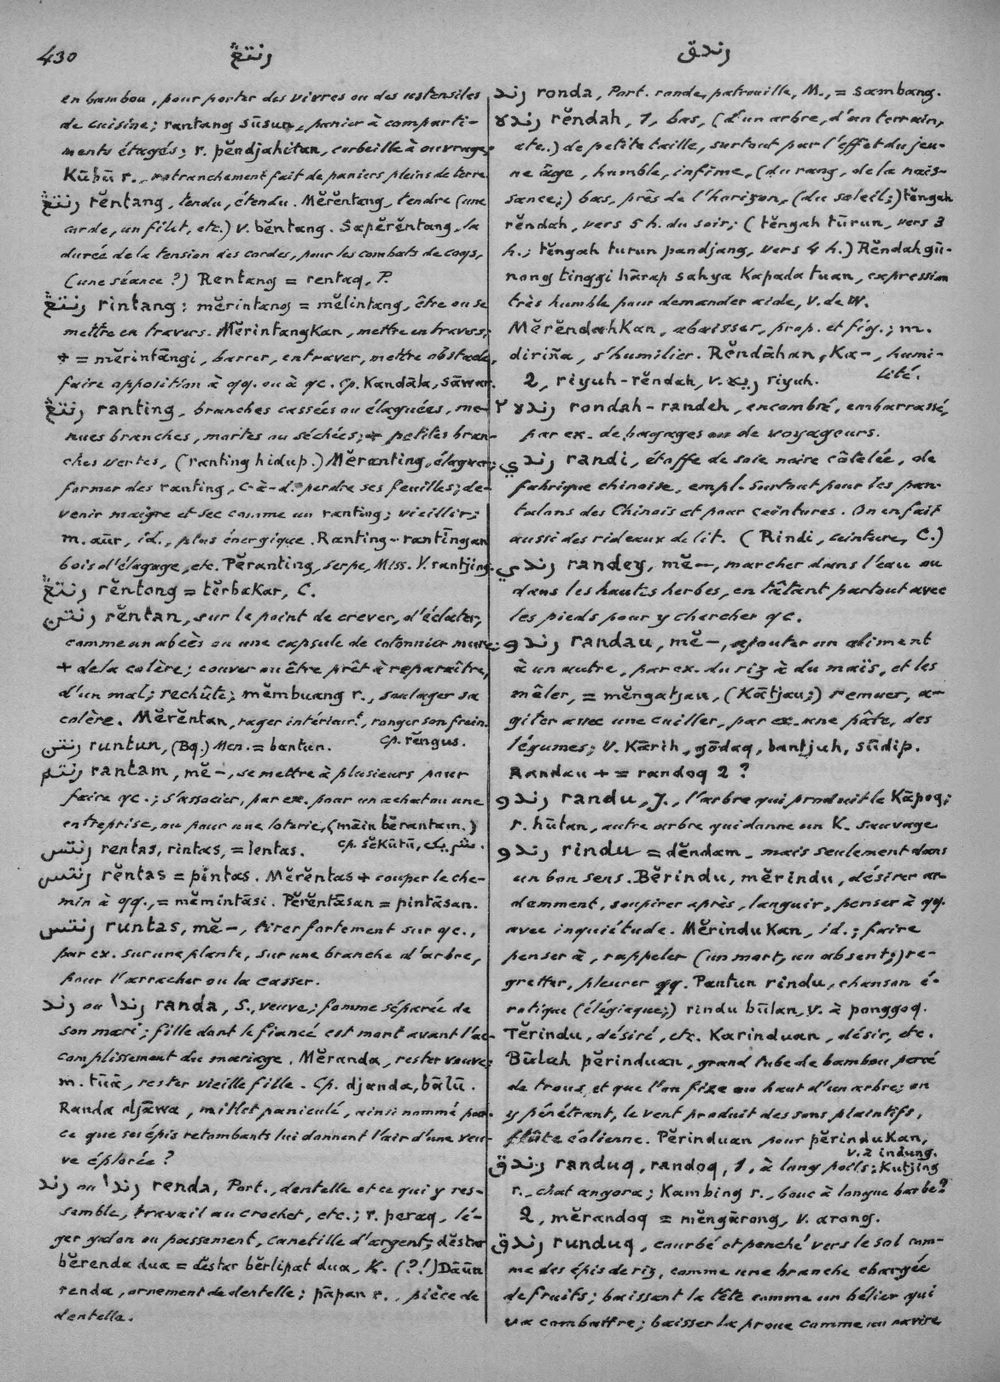 430
رنتڠ
رندق
en bambou, pour porter des vivres ou des ustensiles
de cuisine; rantang sūsun, panier à comparti-
ments étagés; r. pĕndjahitan, corbeille à ouvrage;
Kūbū r., retranchement fait de paniers pleins de terre.
رنتڠ rĕntang, tendu, étendu. Mĕrĕntang, tendre (une
corde, un filet, etc.) v. bĕntang. Sapĕrĕntang, la
durée de la tension des cordes, pour les combats de coqs,
(une séance?) Rentang = rentaq, P.
رنتڠ rintang; mĕrintang = mĕlintang, être ou se
mettre en travers. MĕrintangKan, mettre en travers;
+ = mĕrintāngi, barrer, entraver, mettre obstacle,
faire opposition à qq. ou à qc. Cp. Kandāla, sāwar.
رنتڠ ranting, branches cassées ou élaguées, me-
nues branches, mortes ou séchées; + petites bran-
ches vertes, (ranting hidup.) Mĕranting, élaguer;
former des ranting, c-à-d. perdre ses feuilles; de-
venir maigre et sec comme un ranting; vieillir;
m. aūr, id., plus énergique. Ranting-rantīngan
bois d'élagage, etc. Pĕranting, serpe, Miss. V. rantjing.
رنتڠ rĕntong = tĕrbaKar, C.
رنتن rĕntan, sur le point de crever, d'éclater,
comme un abcès ou une capsule de cotonnier mure;
+ de la colère; couver ou être prêt à reparaître,
d'un mal; rechûte; mĕmbuang r., soulager sa
colère. Mĕrĕntan, rager intérieurt, ronger son frein.
Cp. rĕngus.
رنتن runtun, (Bq.) Men. = bantun.
رنتم rantam, mĕ-, se mettre à plusieurs pour
faire qc.; s'associer, par ex. pour un achat ou une
entreprise, ou pour une loterie, (māin bĕrantam.)
Cp. sĕKūtū, شريكت.
رنتس rentas, rintas, = lentas.
رنتس rĕntas = pintas. Mĕrĕntas + couper le che-
min à qq., = mĕmintāsi. Pĕrĕntāsan = pintāsan.
رنتس runtas, mĕ-, tirer fortement sur qc.,
par ex. sur une plante, sur une branche d'arbre,
pour l'arracher ou la casser.
رند ou رندا randa, S., veuve; femme séparée de
son mari; fille dont le fiancé est mort avant l'ac-
complissement du mariage. Mĕranda, rester veuve;
m. tūā, rester vieille fille. Cp. djanda, bālū.
Randa djāwa, millet paniculé, ainsi nommé par-
ce que ses épis retombants lui donnent l'air d'une veu-
ve éplorée?
رند ou رندا renda, Port., dentelle et ce qui y res-
semble, travail au crochet, etc.; r. peraq, lé-
ger galon ou passement, canetille d'argent; dĕstar
bĕrenda dua = dĕstar bĕrlipat dua, K. (?!) Dāūn
renda, ornement de dentelle; pāpan r., pièce de
dentelle.
رند ronda, Port. ronde, patrouille, M., = sambang.
رنده rĕndah, 1, bas, (d'un arbre, d'un terrain,
etc.) de petite taille, surtout par l'effet du jeu-
ne âge, humble, infime, (du rang, de la nais-
sance;) bas, près de l'horizon, (du soleil;) tĕngah
rĕndah, vers 5 h. du soir; (tĕngah tūrun, vers 3
h.; tĕngah turun pandjang, vers 4 h.) Rĕndah gū-
nong tinggi hārap sahya Kapada tuan, expression
très humble pour demander aide, V. de W.
MĕrĕndahKan, abaisser, prop. et fig.; m.
diriña, s'humilier. Rĕndāhan, Ka-, humi-
lité.
2, riyuh-rĕndah, v. ريه riyuh.
رنده ٢ rondah-randeh, encombré, embarrassé,
par ex. de bagages ou de voyageurs.
رندي randi, étoffe de soie noire côtelée, de
fabrique chinoise, empl. surtout pour les pan-
talons des Chinois et pour ceintures. On en fait
aussi des rideaux de lit. (Rindi, ceinture, C.)
رندي randey, mĕ-, marcher dans l'eau ou
dans les hautes herbes, en tâtant partout avec
les pieds pour y chercher qc.
رندو randau, mĕ-, ajouter un aliment
à un autre, par ex. du riz à du maïs, et les
mêler, = mĕngatjau, (Kātjau;) remuer, a-
giter avec une cuiller, par ex. une pâte, des
légumes; v. Kārih, gōdaq, bantjuh, sūdip.
Randau + = randoq 2?
رندو randu, J., l'arbre qui produit le Kāpoq;
r. hūtan, autre arbre qui donne un K. sauvage.
رندو rindu = dĕndam, mais seulement dans
un bon sens. Bĕrindu, mĕrindu, désirer ar-
demment, soupirer après, languir, penser à qq.
avec inquiétude. MĕrinduKan, id.; faire
penser à, rappeler (un mort, un absent;) re-
gretter, pleurer qq. Pantun rindu, chanson é-
rotique (élégiaque;) rindu būlan, v. à ponggoq.
Tĕrindu, désiré, etc. Karinduan, désir, etc.
Būlah pĕrinduan, grand tube de bambou percé
de trous, et que l'on fixe au haut d'un arbre; en
y pénétrant, le vent produit des sons plaintifs,
flûte éolienne. Pĕrinduan pour pĕrinduKan,
v. à indung.
رندق randuq, randoq, 1, à long poils; Kutjing
r., chat angora; Kambing r., bouc à longue barbe?
2, mĕrandoq = mĕngārong, v. arong.
رندق runduq, courbé et penché vers le sol com-
me des épis de riz, comme une branche chargée
de fruits; baissant la tête comme un bélier qui
va combattre; baisser la proue comme un navire